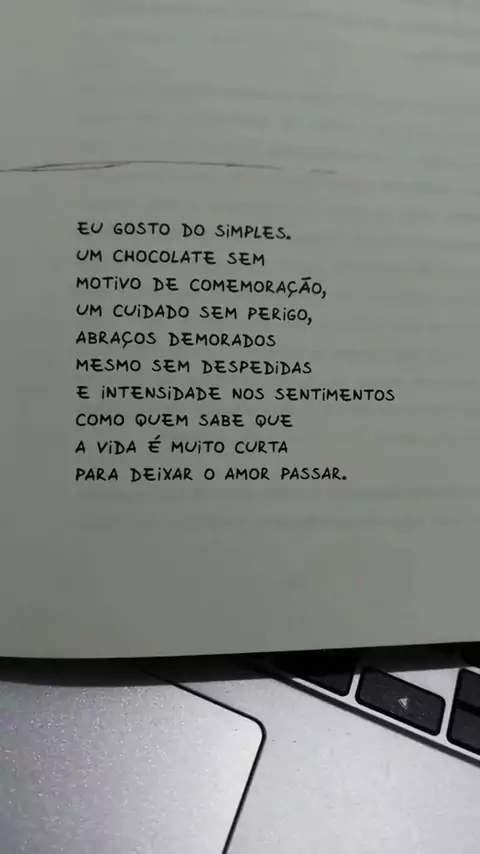 EU GOSTO DO SIMPLES.
UM CHOCOLATE SEM
MOTIVO DE COMEMORAÇÃO,
UM CUIDADO SEM PERIGO,
ABRAÇOS DEMORADOS
MESMO SEM DESPEDIDAS
E INTENSIDADE NOS SENTIMENTOS
COMO QUEM SABE QUE
A VIDA É MUITO CURTA
PARA DEIXAR O AMOR PASSAR.